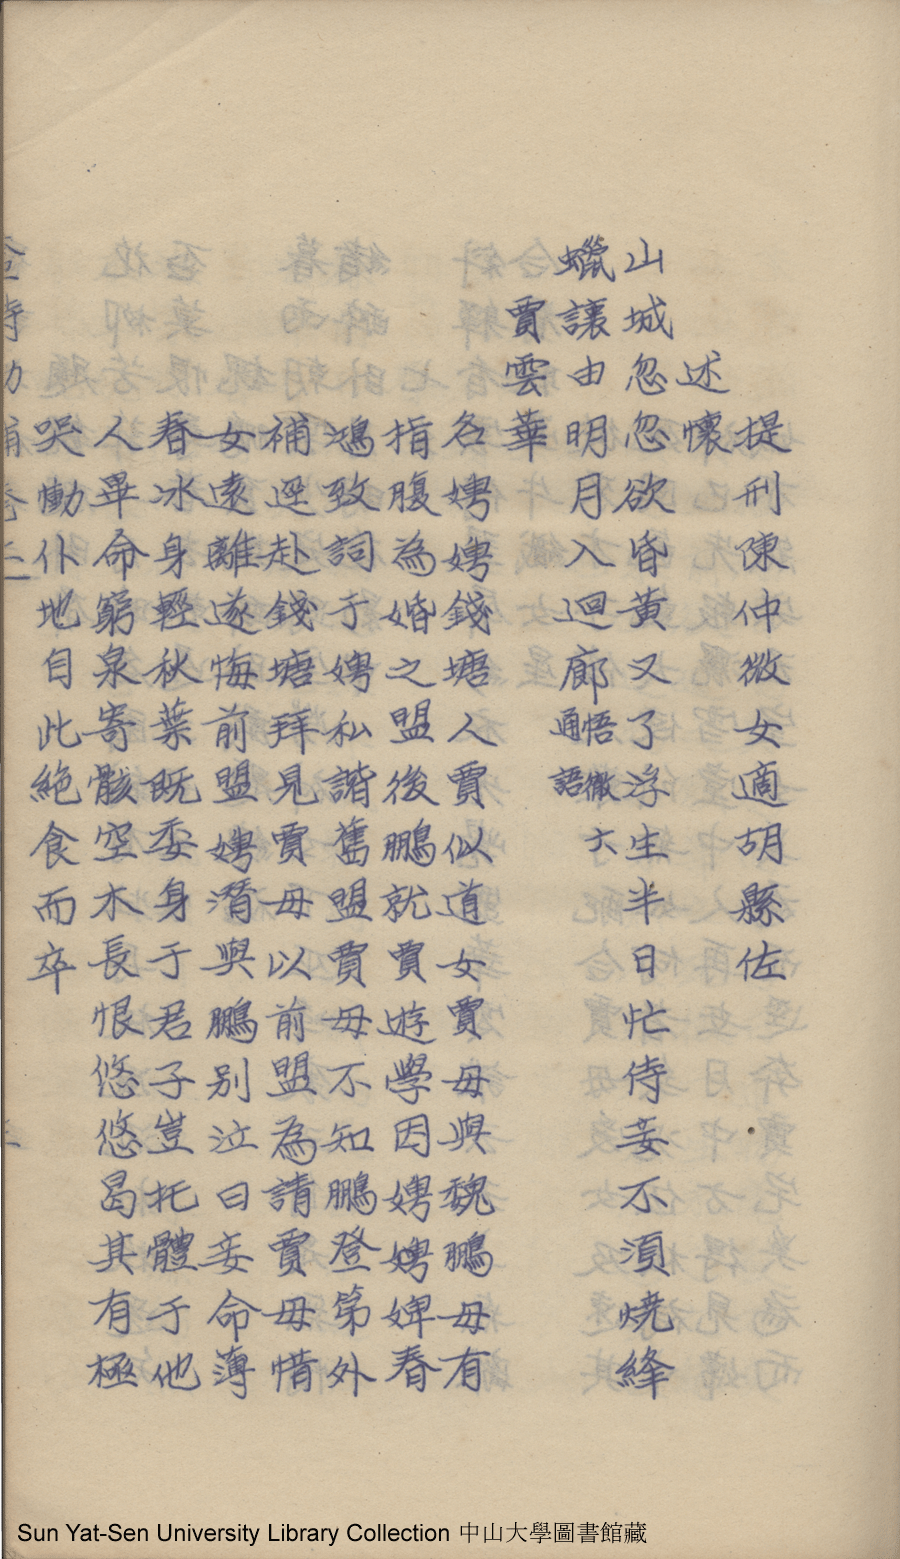 提刑陳仲微女適胡縣佐
述懷
山城忽忽欲昏黃又了浮生半日忙侍妾不須燒絳
蠟讓由明月入迴廊悟徹大通語
賈雲華
名娉娉錢塘人賈似道女賈母與魏鵬母有
指腹為婚之盟後鵬就賈遊學因娉娉婢春
鴻致詞于娉私諧舊盟賈母不知鵬登第外
補逕赴錢塘拜見賈母以前盟為請賈母惜
女遠離遂悔前盟娉潛與鵬別泣曰妾命薄
春冰身輕秋葉既委身于君子豈托體于他
人畢命窮泉寄骸空木長恨悠悠曷其有極
哭慟仆地自此絕食而卒
Sun Yat-Sen University Library Collection 中山大學圖書館藏